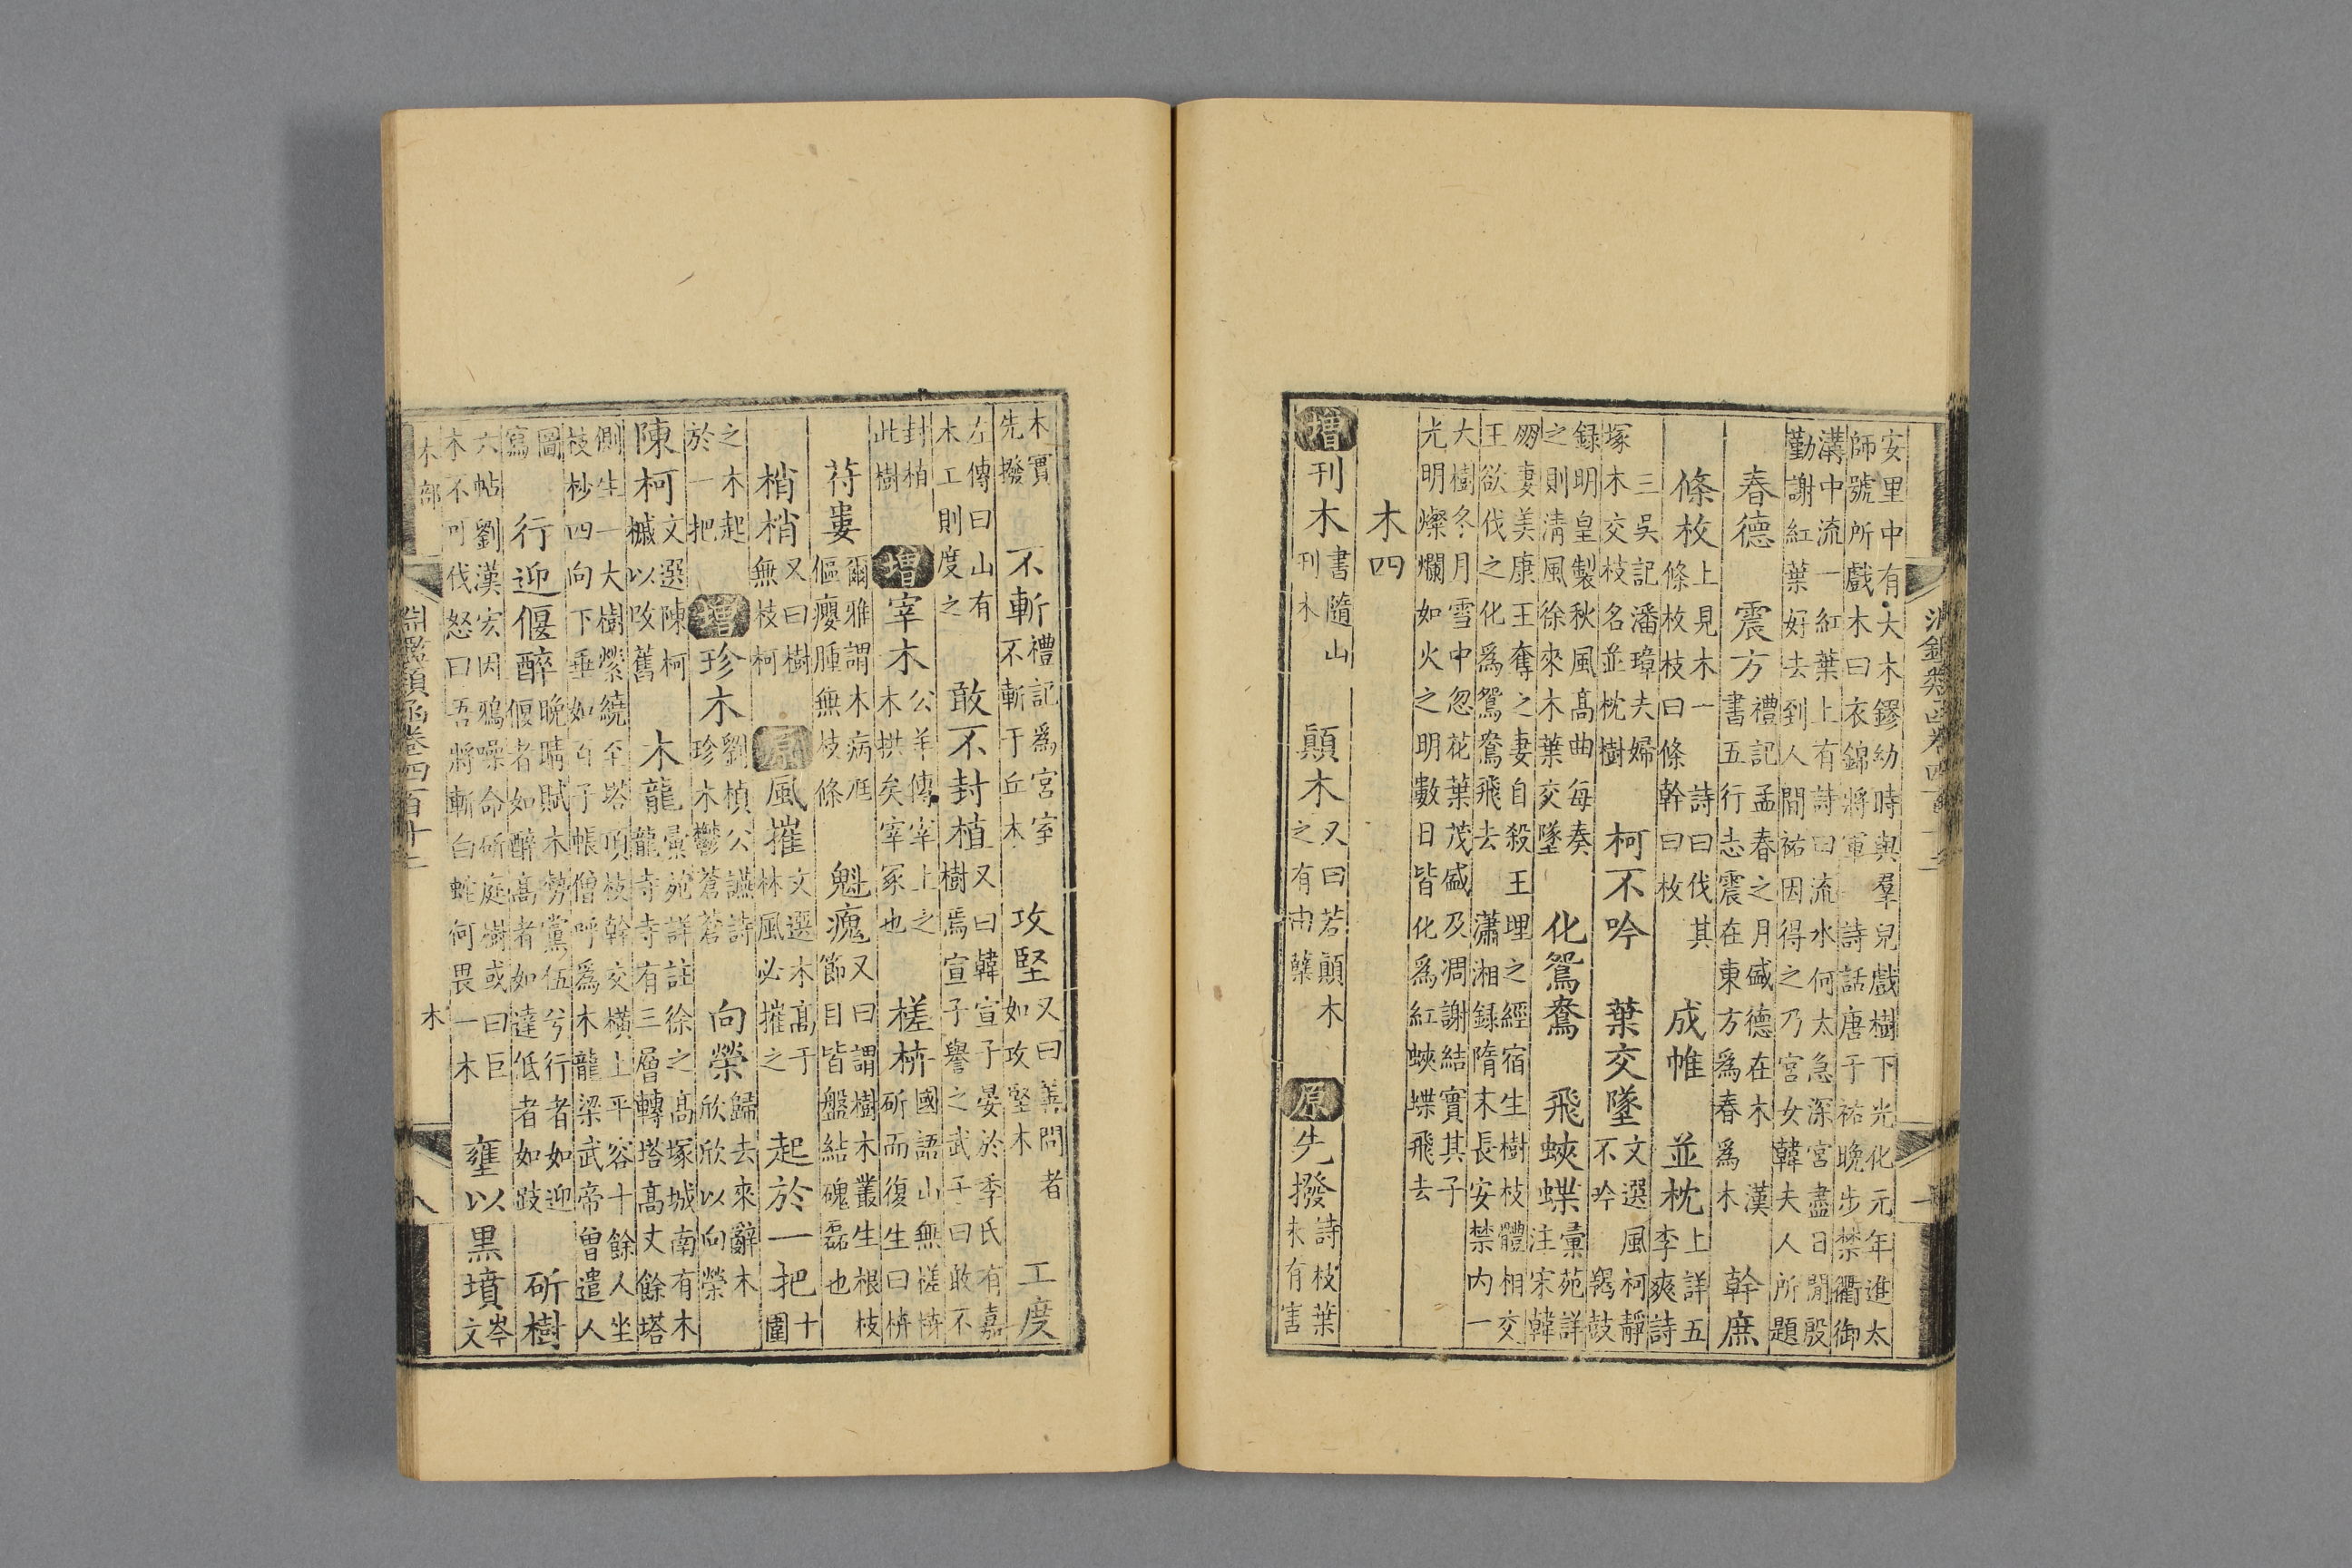 安里中有大木鏐幼時與羣兒戲樹下光化元年進太
師號所戲木曰衣錦將軍 詩話唐于祐晚步禁衢御
溝中流一紅葉上有詩曰流水何太急深宮盡日閒殷
勤謝紅葉好去到人間祐因得之乃宮女韓夫人所題
春德 震方 禮記孟春之月盛德在木 漢書五行志震在東方爲春爲木 幹庶
上見木一 詩曰伐其
條枚 條枚枝曰條幹曰枚 成帷 並枕 上詳五李爽詩
三吳記潘璋夫婦
塚木交枝名並枕樹 柯不吟 葉交墜 文選風柯靜不吟 羯鼓
録明皇製秋風高曲每奏
之則清風徐來木葉交墜 化鴛鴦 飛蛺蝶 彙苑詳注宋韓
朋妻美康王奪之妻自殺王埋之經宿生樹枝體相交
王欲伐之化爲鴛鴦飛去 瀟湘録隋末長安禁内一
大樹冬月雪中忽花葉茂盛及凋謝結實其子
光明燦爛如火之明數日皆化爲紅蛺蝶飛去
木四
增 刊木 書隨山刊木 顛木 又曰若顛木之有由蘖 原 先撥 詩枝葉未有害
木實先撥 不斬 禮記爲宮室不斬于丘木 攻堅 又曰善問者如攻堅木 工度
左傳曰山有木工則度之 敢不封植 又曰韓宣子晏於季氏有嘉樹焉宣子譽之武子曰敢不
封柏此樹 增 宰木 公羊傳宰上之木拱矣宰冢也 槎枿 國語山無槎枿斫而復生曰枿
苻婁 爾雅謂木病尫傴癭腫無枝條 魁瘣 又曰謂樹木叢生根枝節目皆盤結磈磊也
梢梢 又曰樹無枝柯 原 風摧 文選木高于林風必摧之 起於一把 十圍
之木起於一把 增 珍木 劉楨公讌詩珍木鬱蒼蒼 向榮 歸去來辭木欣欣以向榮
陳柯 文選陳柯槭以改舊 木龍 彙苑詳註徐之高塚城南有木龍寺寺有三層轉塔高丈餘塔
側生一大樹縈繞至塔項枝幹交橫上平容十餘人坐
枝杪四向下垂如百子帳僧呼爲木龍梁武帝曾遣人
圖寫 行迎偃醉 晚晴賦木勢黨伍兮行者如迎偃者如醉高者如達低者如跂 斫樹
六帖劉漢宏因鴉噪命斫庭樹或曰巨木不可伐怒曰吾將斬白蛇何畏一木 壅以黑墳 岑文
木部 淵鑑類函卷四百十二 木 八